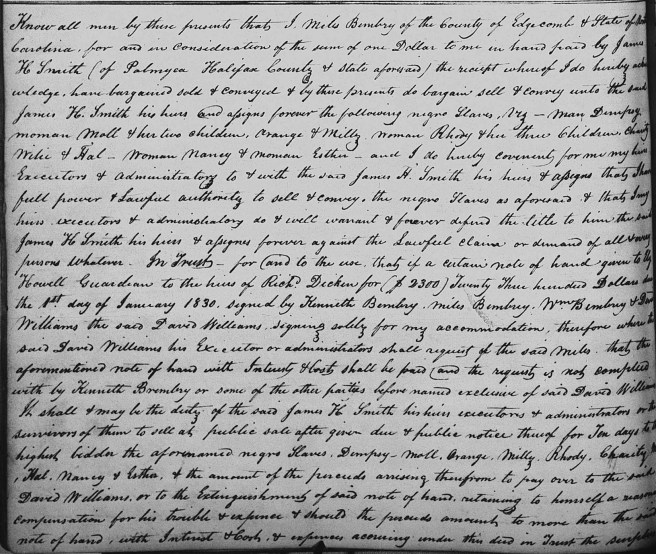 Know all men by these presents that I Miles Bembry of the County of Edgecomb & State of North
Carolina, for and in consideration of the sum of one Dollar to me in hand paid by James
H Smith (of Palmyra Halifax County & State aforesaid) the receipt whereof I do hereby ackn
owledge, have bargained sold & conveyed & by these presents do bargain sell & convey unto the said
James H. Smith his heirs and assigns forever the following negro Slaves, Viz – Man Dempsy,
woman Moll & her two children, Orange & Milly, woman Rhody & her three Children, Charity
Wilie & Hal – Woman Nancy & woman Esther – and I do hereby covenent, for me my heirs
Executors & Administrators to & with the said James H. Smith his heirs & assigns that I have
full power & Lawful authority to sell & convey, the negro Slaves as aforesaid & that I my
heirs executors & administrators do & well warant & forever defend the title to him the said
James H Smith his heirs & assignes forever against the Lawful claim or demand of all & every
persons whatever. In Trust – for (and to the use, that if a certain note of hand given to
Howell Guardian to the heirs of Richd. Dicken for ($ 2300) Twenty Three hundred Dollars due
the 1st day of January 1830. signed by Kenneth Bembry, Miles Bembrey, Wm Bembry & David
Williams the said David Williams, signing solely for my accommodation, therefore where the
said David Williams his Executor or administrators shall request of the said Miles that the
aforementioned note of hand with Interest & Cost shall be paid (and the request is not complied
with by Kenneth Brembry or some of the other parties before named exclusive of said David Williams
It shall & may be the duty of the said James H Smith his heirs executors & administrators or the
survivors of them to sell at public sale after given due & public notice thereof for Ten days to the
highest bidder the aforenamed negro Slaves, Dempsy – Moll, Orange, Milly, Rhody, Charity
, Hal, Nancy & Esther, & the amount of the proceeds arising therefrom to pay over to the said
David Williams, or to the Extinguishment of said note of hand, retaining to himself a reason
compensation for his trouble & expence & should the proceeds amount to more than the said
note of hand, with Interest & Cost, & expences accruing under this deed in Trust the surplus